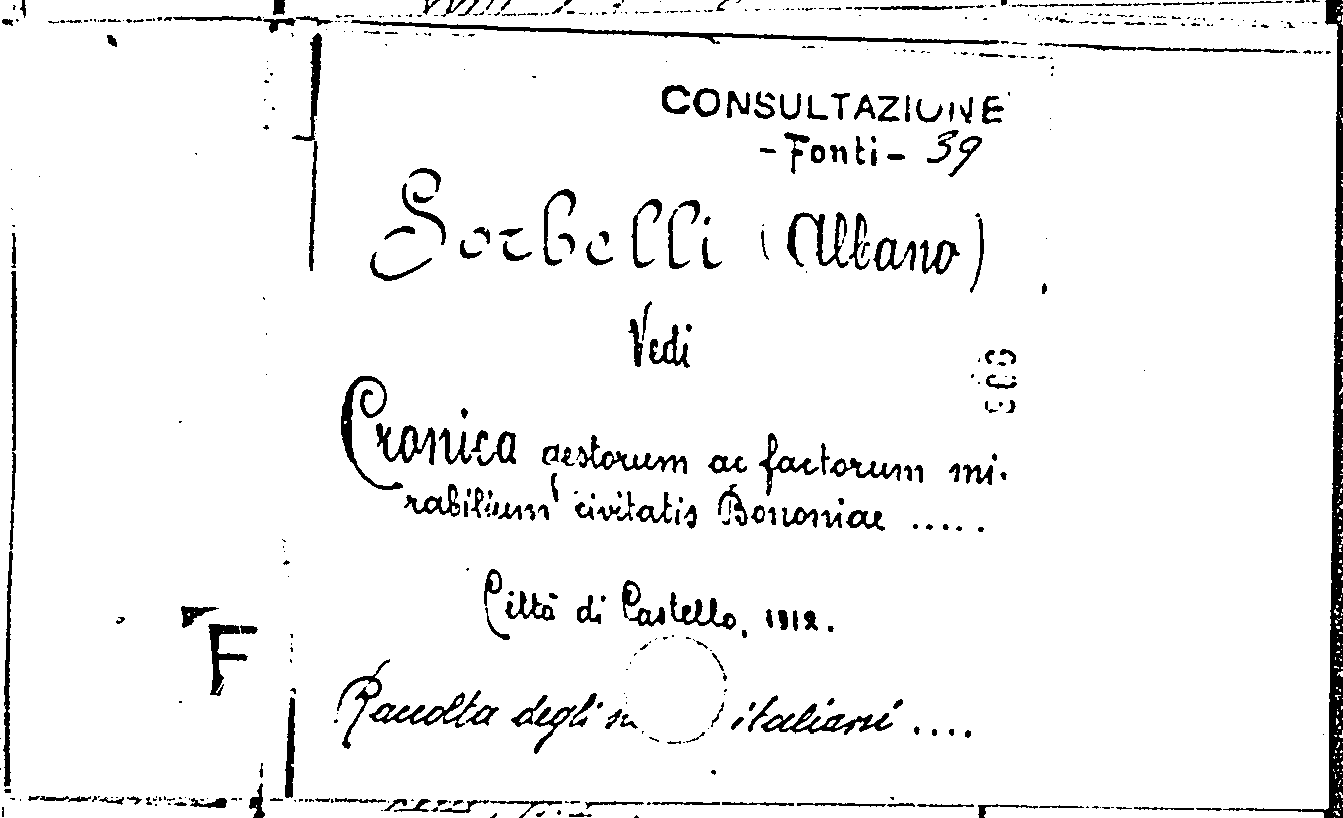 CONSULTAZIONE
- Fonti - 39
Sorbelli (Albano)
Vedi
Cronica gestorum ac factorum mi-
rabilium civitatis Bononiae .....
Città di Castello, 1912.
F
Raccolta degli italiani ....